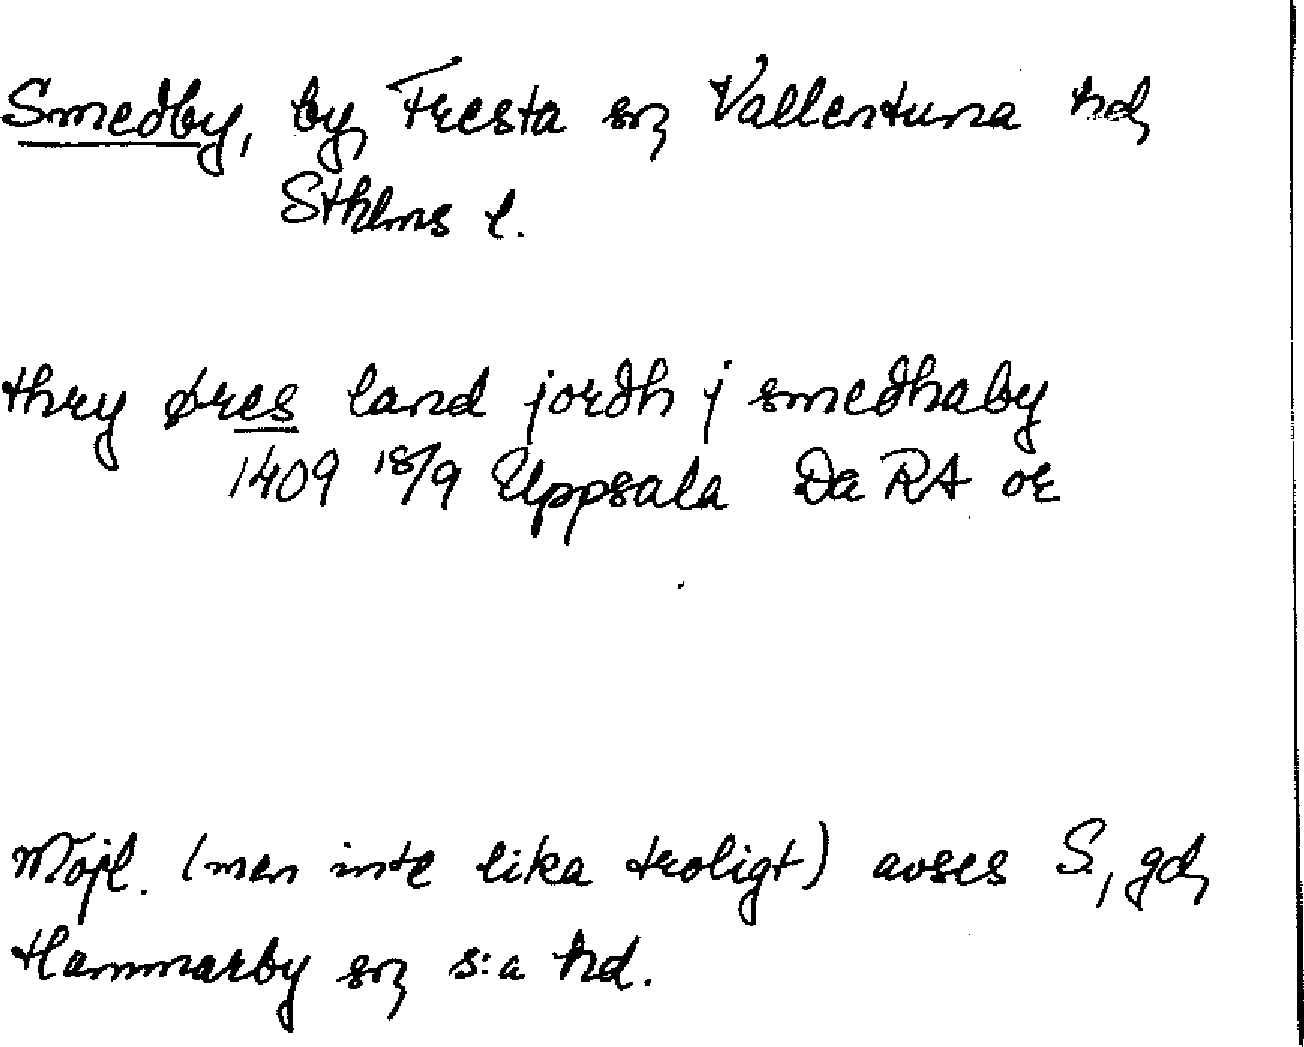 Smedby, by, Fresta sn, Vallentuna hd,
Sthlms l.
thry øres land jordh j smedhaby
1409 18/9 Uppsala Da RA or
Möjl. (men inte lika troligt) avses S, gd,
Hammarby sn, s:a hd.